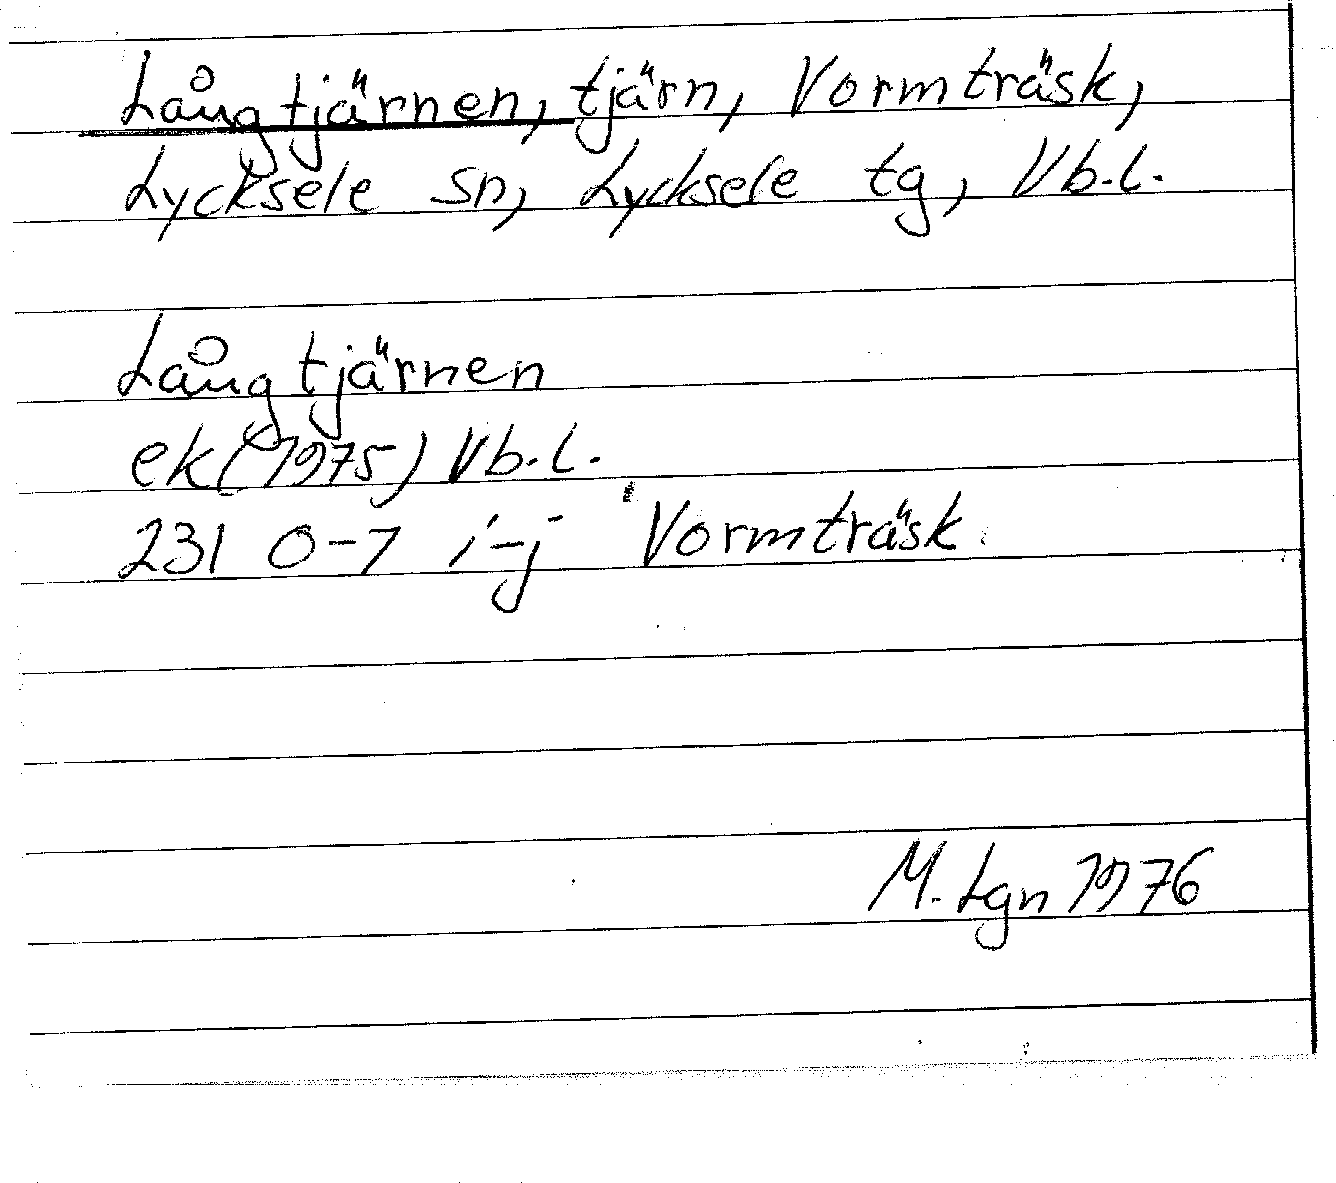 Långtjärnen, tjärn, Vormträsk,
Lycksele sn, Lycksele tg, Vb.l.
Långtjärnen
ek (1975) Vb.l.
231 0-7 i-j Vormträsk
M. Lgn 1976